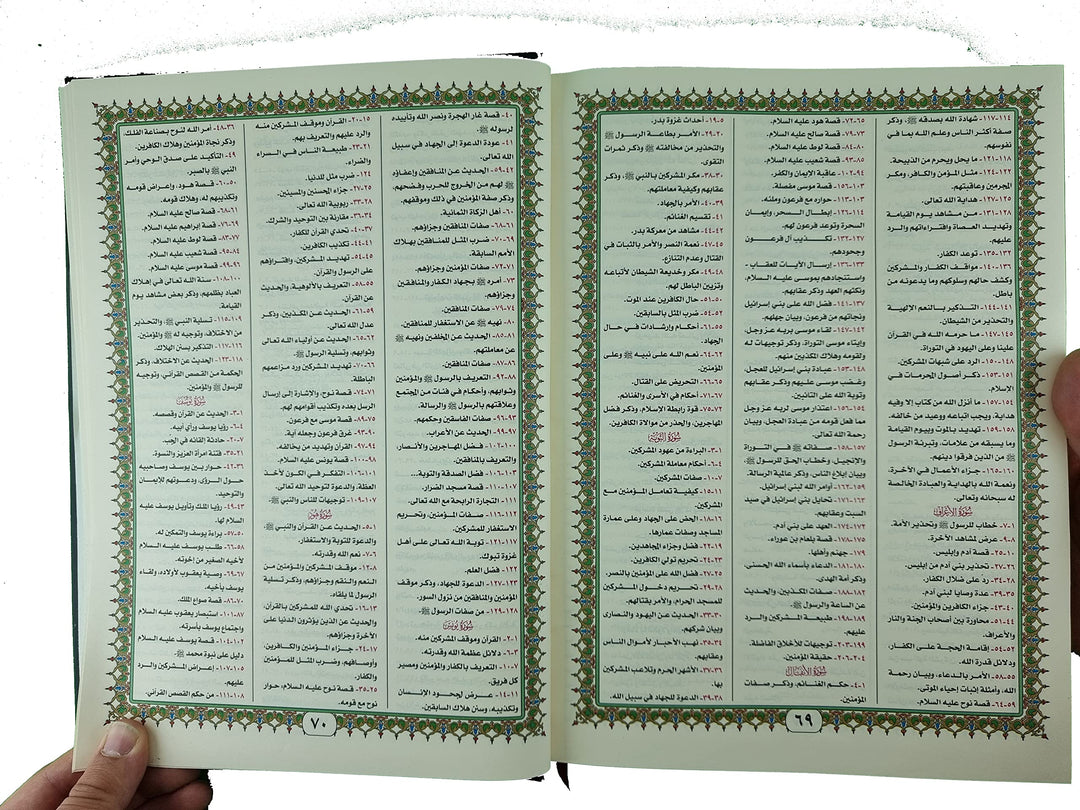 ١١٤-١١٧- شهادة الله بصدقه ﷺ، وذكر
صفة أكثر الناس وعلم الله بما في
نفوسهم.
١١٨-١٢١- ما يحل ويحرم من الذبيحة.
١٢٢-١٢٤- مثل المؤمن والكافر، ومكر
المجرمين وعاقبتهم.
١٢٥-١٢٧- هداية الله تعالى.
١٢٨-١٣١- من مشاهد يوم القيامة
وتهديد العصاة وافتراءاتهم والرد
عليهم.
١٣٢-١٣٥- توعد الكفار.
١٣٦-١٤٠- مواقف الكفار والمشركين
وكشف حالهم وسلوكهم وما يدعونه من
باطل.
١٤١-١٤٤- التذكير بالنعم الإلهية
والتحذير من الشيطان.
١٤٥-١٤٧- ما حرمه الله في القرآن
علينا وعلى اليهود في التوراة.
١٤٨-١٥٠- الرد على شبهات المشركين.
١٥١-١٥٣- ذكر أصول المحرمات في
الإسلام.
١٥٤-١٥٧- ما أنزل الله من كتاب إلا وفيه
هداية، ويجب اتباعه ووعيد من خالفه.
١٥٨-١٥٩- تهديد بالموت وبيوم القيامة
وما يسبقه من علامات، وتبرئة الرسول
ﷺ من الذين فرقوا دينهم.
١٦٠-١٦٥- جزاء الأعمال في الآخرة،
ونعمة الله بالهداية والعبادة الخالصة
له سبحانه وتعالى.
سورة الأعراف
١-٧- خطاب للرسول ﷺ وتحذير الأمة.
٨-٩- عرض لمشاهد الآخرة.
١٠-٢٥- قصة آدم وإبليس.
٢٦-٢٧- تحذير بني آدم من إبليس.
٢٨-٣٤- رد على ضلال الكفار.
٣٥-٣٩- عدة وصايا لبني آدم.
٤٠-٤٣- جزاء الكافرين والمؤمنين.
٤٤-٥١- محاورة بين أصحاب الجنة والنار
والأعراف.
٥٢-٥٤- إقامة الحجة على الكفار،
ودلائل قدرة الله.
٥٥-٥٨- الأمر بالدعاء، وبيان رحمة
الله، وأمثلة إثبات إحياء الموتى.
٥٩-٦٤- قصة نوح عليه السلام.
٦٥-٧٢- قصة هود عليه السلام.
٧٣-٧٩- قصة صالح عليه السلام.
٨٠-٨٤- قصة لوط عليه السلام.
٨٥-٩٣- قصة شعيب عليه السلام.
٩٤-١٠٢- عاقبة الإيمان والكفر.
١٠٣-١٥٦- قصة موسى مفصلة.
١٠٣-١١٣- حواره مع فرعون وملئه.
١١٤-١٢٦- إبطال السحر، وإيمان
السحرة وتوعد فرعون لهم.
١٢٧-١٣٢- تكذيب آل فرعون
وجحودهم.
١٣٣-١٣٦- إرسال الآيات للعقاب -
واستنجادهم بموسى عليه السلام،
ونكثهم العهد وذكر عقابهم.
١٣٧-١٤١- فضل الله على بني إسرائيل
ونجاتهم من فرعون، وبيان جهلهم.
١٤٢-١٤٧- لقاء موسى بربه عز وجل
وإيتاء موسى التوراة، وذكر توجيهات له
ولقومه وهلاك المكذبين منهم.
١٤٨-١٥٣- عبادة بني إسرائيل للعجل،
وغضب موسى عليهم وذكر عقابهم
وتوبة الله على التائبين.
١٥٤-١٥٦- اعتذار موسى لربه عز وجل
مما فعل قومه من عبادة العجل، وبيان
رحمة الله تعالى.
١٥٧-١٥٨- صفاته ﷺ في التوراة
والإنجيل، وخطاب الحق للرسول ﷺ
وبيان إبلاغ الناس، وذكر عالمية الرسالة.
١٥٩-١٦٢- أوامر الله لبني إسرائيل.
١٦٣-١٧١- تحايل بني إسرائيل في صيد
السبت وعقابهم.
١٧٢-١٧٤- العهد على بني آدم.
١٧٥-١٧٨- قصة بلعام بن عوراء.
١٧٩- جهنم وأهلها.
١٨٠-١٨١- الدعاء بأسماء الله الحسنى،
وذكر أمة الهدى.
١٨٢-١٨٨- صفات المكذبين، والحديث
عن الساعة والرسول ﷺ.
١٨٩-١٩٨- طبيعة المشركين والرد
عليهم.
١٩٩-٢٠٣- توجيهات للأخلاق الفاضلة.
٢٠٤-٢٠٦- حقيقة المؤمنين.
سورة الأنفال
١-٤- حكم الغنائم، وذكر صفات
المؤمنين.
٥-١٩- أحداث غزوة بدر.
٢٠-٢٩- الأمر بطاعة الرسول ﷺ
والتحذير من مخالفته ﷺ وذكر ثمرات
التقوى.
٣٠-٣٨- مكر المشركين بالنبي ﷺ، وذكر
عقابهم وكيفية معاملتهم.
٣٩-٤٠- الأمر بالجهاد.
٤١- تقسيم الغنائم.
٤٢-٤٤- مشاهد من معركة بدر.
٤٥-٤٧- نعمة النصر والأمر بالثبات في
القتال وعدم التنازع.
٤٨-٤٩- مكر وخديعة الشيطان لأتباعه
وتزيين الباطل لهم.
٥٠-٥١- حال الكافرين عند الموت.
٥٢-٥٤- ضرب المثل بالسابقين.
٥٥-٦١- أحكام وإرشادات في حال
الجهاد.
٦٢-٦٤- نعم الله على نبيه ﷺ وعلى
المؤمنين.
٦٥-٦٦- التحريض على القتال.
٦٧-٧١- أحكام في الأسرى والغنائم.
٧٢-٧٥- قوة رابطة الإسلام، وذكر فضل
المهاجرين، والحذر من موالاة الكافرين.
سورة التوبة
١-٣- البراءة من عهود المشركين.
٤-٦- أحكام معاملة المشركين.
٧-١٠- صفات المشركين.
١١-١٥- كيفية تعامل المؤمنين مع
المشركين.
١٦-١٨- الحض على الجهاد وعلى عمارة
المساجد وصفات عمارها.
١٩-٢٢- فضل وجزاء المجاهدين.
٢٣-٢٤- تحريم تولي الكافرين.
٢٥-٢٧- فضل الله على المؤمنين بالنصر.
٢٨-٢٩- تحريم دخول المشركين
للمسجد الحرام، والأمر بقتالهم.
٣٠-٣٣- الحديث عن اليهود والنصارى
وبيان شركهم.
٣٤-٣٥- نهب الأحبار لأموال الناس
وعقابهم.
٣٦-٣٧- الأشهر الحرم وتلاعب المشركين
بها.
٣٨-٣٩- الدعوة للجهاد في سبيل الله.
٦٩
٤٠- قصة غار الهجرة ونصر الله وتأييده
لرسوله ﷺ.
٤١- عودة الدعوة إلى الجهاد في سبيل
الله تعالى.
٤٢-٥٩- الحديث عن المنافقين وإعفاؤه
ﷺ لهم من الخروج للحرب وفضحهم،
وذكر صفة المؤمنين في ذلك وموقفهم.
٦٠- أهل الزكاة الثمانية.
٦١-٦٨- صفات المنافقين وجزاؤهم.
٦٩-٧٠- ضرب المثل للمنافقين بهلاك
الأمم السابقة.
٧١-٧٢- صفات المؤمنين وجزاؤهم.
٧٣- أمره ﷺ بجهاد الكفار والمنافقين
وجزاؤهم.
٧٤-٧٩- صفات المنافقين.
٨٠- نهيه ﷺ عن الاستغفار للمنافقين.
٨١-٨٥- الحديث عن المخلفين ونهيه ﷺ
عن معاملتهم.
٨٦-٨٧- صفات المنافقين.
٨٨-٩٢- التعريف بالرسول ﷺ والمؤمنين
وثوابهم، وأحكام في فئات من المجتمع
وعلاقتهم بالرسول ﷺ والرسالة.
٩٣-٩٦- صفات الفاسقين وحكمهم.
٩٧-٩٩- الحديث عن الأعراب.
١٠٠-١٠٢- فضل المهاجرين والأنصار،
والتعريف بالمنافقين.
١٠٣-١٠٦- فضل الصدقة والتوبة...
١٠٧-١١٠- قصة مسجد الضرار.
١١١- التجارة الرابحة مع الله تعالى.
١١٢-١١٦- صفات المؤمنين، وتحريم
الاستغفار للمشركين.
١١٧-١٢١- توبة الله تعالى على أهل
غزوة تبوك.
١٢٢- فضل العلم.
١٢٣-١٢٧- الدعوة للجهاد، وذكر موقف
المؤمنين والمنافقين من نزول السور.
١٢٨-١٢٩- من صفات الرسول ﷺ.
سورة يونس
١-٢- القرآن وموقف المشركين منه.
٣-٦- دلائل عظمة الله وقدرته.
٧-١٠- التعريف بالكفار والمؤمنين ومصير
كل فريق.
١١-١٤- عرض لجحود الإنسان
وتكذيبه، وسنن هلاك السابقين.
١٥-٢٠- القرآن وموقف المشركين منه
والرد عليهم والتعريف بهم.
٢١-٢٣- طبيعة الناس في السراء
والضراء.
٢٤- ضرب مثل للدنيا.
٢٥-٢٧- جزاء المحسنين والمسيئين.
٢٨-٣٣- ربوبية الله تعالى.
٣٤-٣٦- مقارنة بين التوحيد والشرك.
٣٧-٤٠- تحدي القرآن للكفار.
٤١-٤٤- تكذيب الكافرين.
٤٥-٥٤- تهديد المشركين، وافتراؤهم
على الرسول والقرآن.
٥٥-٥٨- التعريف بالألوهية، والحديث
عن القرآن.
٥٩-٦١- الحديث عن المكذبين، وذكر
عدل الله تعالى.
٦٢-٦٥- الحديث عن أولياء الله تعالى
وثوابهم، وتسلية الرسول ﷺ.
٦٦-٧٠- تهديد المشركين ورد مزاعمهم
الباطلة.
٧١-٧٤- قصة نوح، والإشارة إلى إرسال
الرسل بعده وتكذيب أقوامهم لهم.
٧٥-٨٩- قصة موسى مع فرعون.
٩٠-٩٣- غرق فرعون وجعله آية.
٩٤-٩٧- القرآن وتهديد من يخالفه.
٩٨-١٠٠- قصة يونس عليه السلام.
١٠١-١٠٦- التفكر في الكون لأخذ
العظة، والدعوة لتوحيد الله تعالى.
١٠٧-١٠٩- توجيهات للناس والنبي ﷺ.
سورة هود
١-٥- الحديث عن القرآن والنبي ﷺ،
والدعوة للتوبة والاستغفار.
٦-٧- نعم الله وقدرته.
٨-١٢- موقف المشركين والمؤمنين من
النعم والنقم وجزاؤهم، وذكر تسلية
الرسول لما يلقاه.
١٣-١٦- تحدي الله للمشركين بالقرآن،
والحديث عن الذين يؤثرون الدنيا على
الآخرة وجزاؤهم.
١٧-٢٤- جزاء المؤمنين والكافرين،
وأوصافهم، وضرب المثل للمؤمنين
والكفار.
٢٥-٣٥- قصة نوح عليه السلام، حوار
نوح مع قومه.
٣٦-٤٨- أمر الله لنوح بصناعة الفلك،
وذكر نجاة المؤمنين وهلاك الكافرين.
٤٩- التأكيد على صدق الوحي وأمر
النبي ﷺ بالصبر.
٥٠-٦٠- قصة هود، وإعراض قومه
وتكذيبهم له، وهلاك قومه.
٦١-٦٨- قصة صالح عليه السلام.
٦٩-٧٦- قصة إبراهيم عليه السلام.
٧٧-٨٣- قصة لوط عليه السلام.
٨٤-٩٥- قصة شعيب عليه السلام.
٩٦-٩٩- قصة موسى عليه السلام.
١٠٠-١٠٨- سنة الله تعالى في إهلاك
العباد بظلمهم، وذكر بعض مشاهد يوم
القيامة.
١٠٩-١١٥- تسلية النبي ﷺ، والتحذير
من الاختلاف، وتوجيه له ﷺ والمؤمنين.
١١٦-١١٧- التذكير بسنن الهلاك.
١١٨-١٢٣- الحديث عن الاختلاف، وذكر
الحكمة من القصص القرآني، وتوجيه
للرسول ﷺ والمؤمنين.
سورة يوسف
١-٣- الحديث عن القرآن وقصصه.
٤-٦- رؤيا يوسف ورأي أبيه.
٧-٢٠- حادثة إلقائه في الجب.
٢١-٣٥- فتنة امرأة العزيز والنسوة.
٣٦-٤٢- حوار بين يوسف وصاحبيه
حول الرؤى، ودعوتهم للإيمان
والتوحيد.
٤٣-٤٩- رؤيا الملك وتأويل يوسف عليه
السلام لها.
٥٠-٥٧- براءة يوسف والتمكين له.
٥٨-٦٦- طلب يوسف عليه السلام
لأخيه الصغير من إخوته.
٦٧-٦٩- وصية يعقوب لأولاده، ولقاء
يوسف بأخيه.
٧٠-٨٦- قصة صواع الملك.
٨٧-١٠١- استبصار يعقوب عليه السلام
واجتماع يوسف بأسرته.
١٠٢-١٠٤- قصة يوسف عليه السلام
دليل على نبوة محمد ﷺ.
١٠٥-١٠٧- إعراض المشركين والرد
عليهم.
١٠٨-١١١- من حكم القصص القرآني.
٧٠